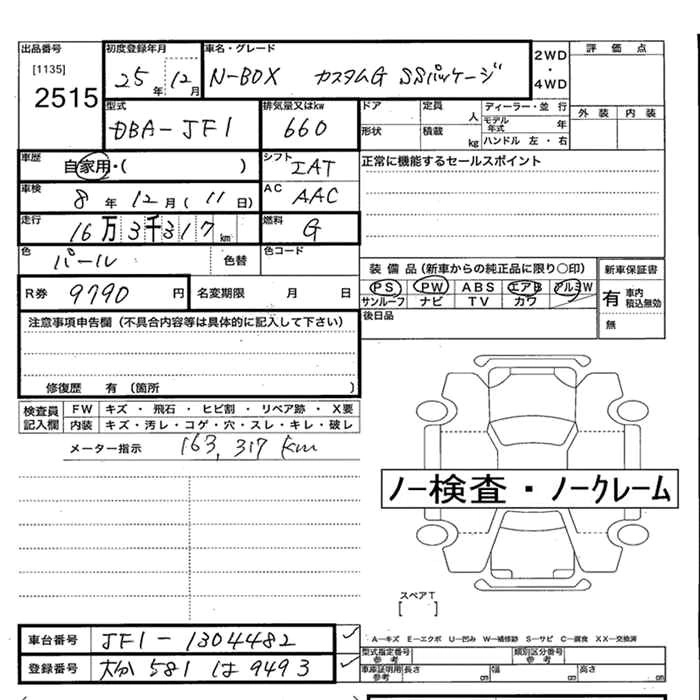 出品番号
[1135]
2515
初度登録年月
25年12月
車名・グレード
N-BOX カスタムG SSパッケージ
2WD
・
4WD
評価点
外装 内装
型式
DBA-JF1
排気量又はkw
660
ドア 定員 人
形状 積載 kg
ディーラー・並行
モデル年式 年
ハンドル 左・右
車歴
自家用・( )
シフト
IAT
正常に機能するセールスポイント
車検
8年12月(11日)
AC
AAC
走行
16万3千317km
燃料
G
色
パール
色替
色コード
装備品(新車からの純正品に限り○印)
PS PW ABS エアB アルミW
サンルーフ ナビ TV カワ
新車保証書
有 車内積込無効
無
R券 9790円
名変期限 月 日
後日品
注意事項申告欄(不具合内容等は具体的に記入して下さい)
修復歴 有(箇所 )
検査員記入欄
FW キズ・飛石・ヒビ割・リペア跡・X要
内装 キズ・汚レ・コゲ・穴・スレ・キレ・破レ
メーター指示 163,317km
ノー検査・ノークレーム
スペアT
[ ]
車台番号 JF1-1304482
登録番号 大分581は9493
A―キズ E―エクボ U―凹み W―補修跡 S―サビ C―腐食 XX―交換済
型式指定番号 参考
類別区分番号 参考
車庫証明用 参考 長さ cm 幅 cm 高さ cm